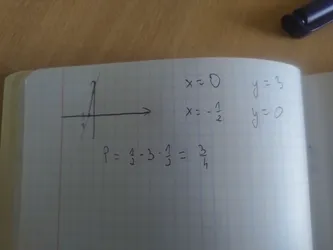 x = 0 y = 3
x = -1/2 y = 0
P = 1/2 · 3 · 1/2 = 3/4